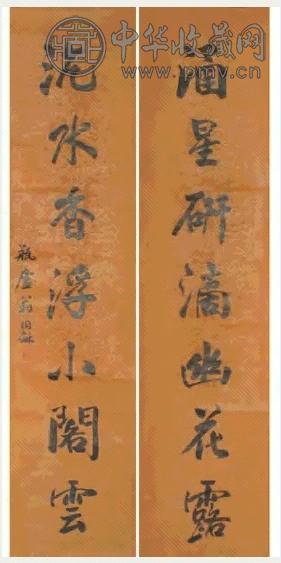 中华收藏网
www.pmv.cn
涵星研滴幽花露
沈水香浮小閣雲
瓶廬翁同龢